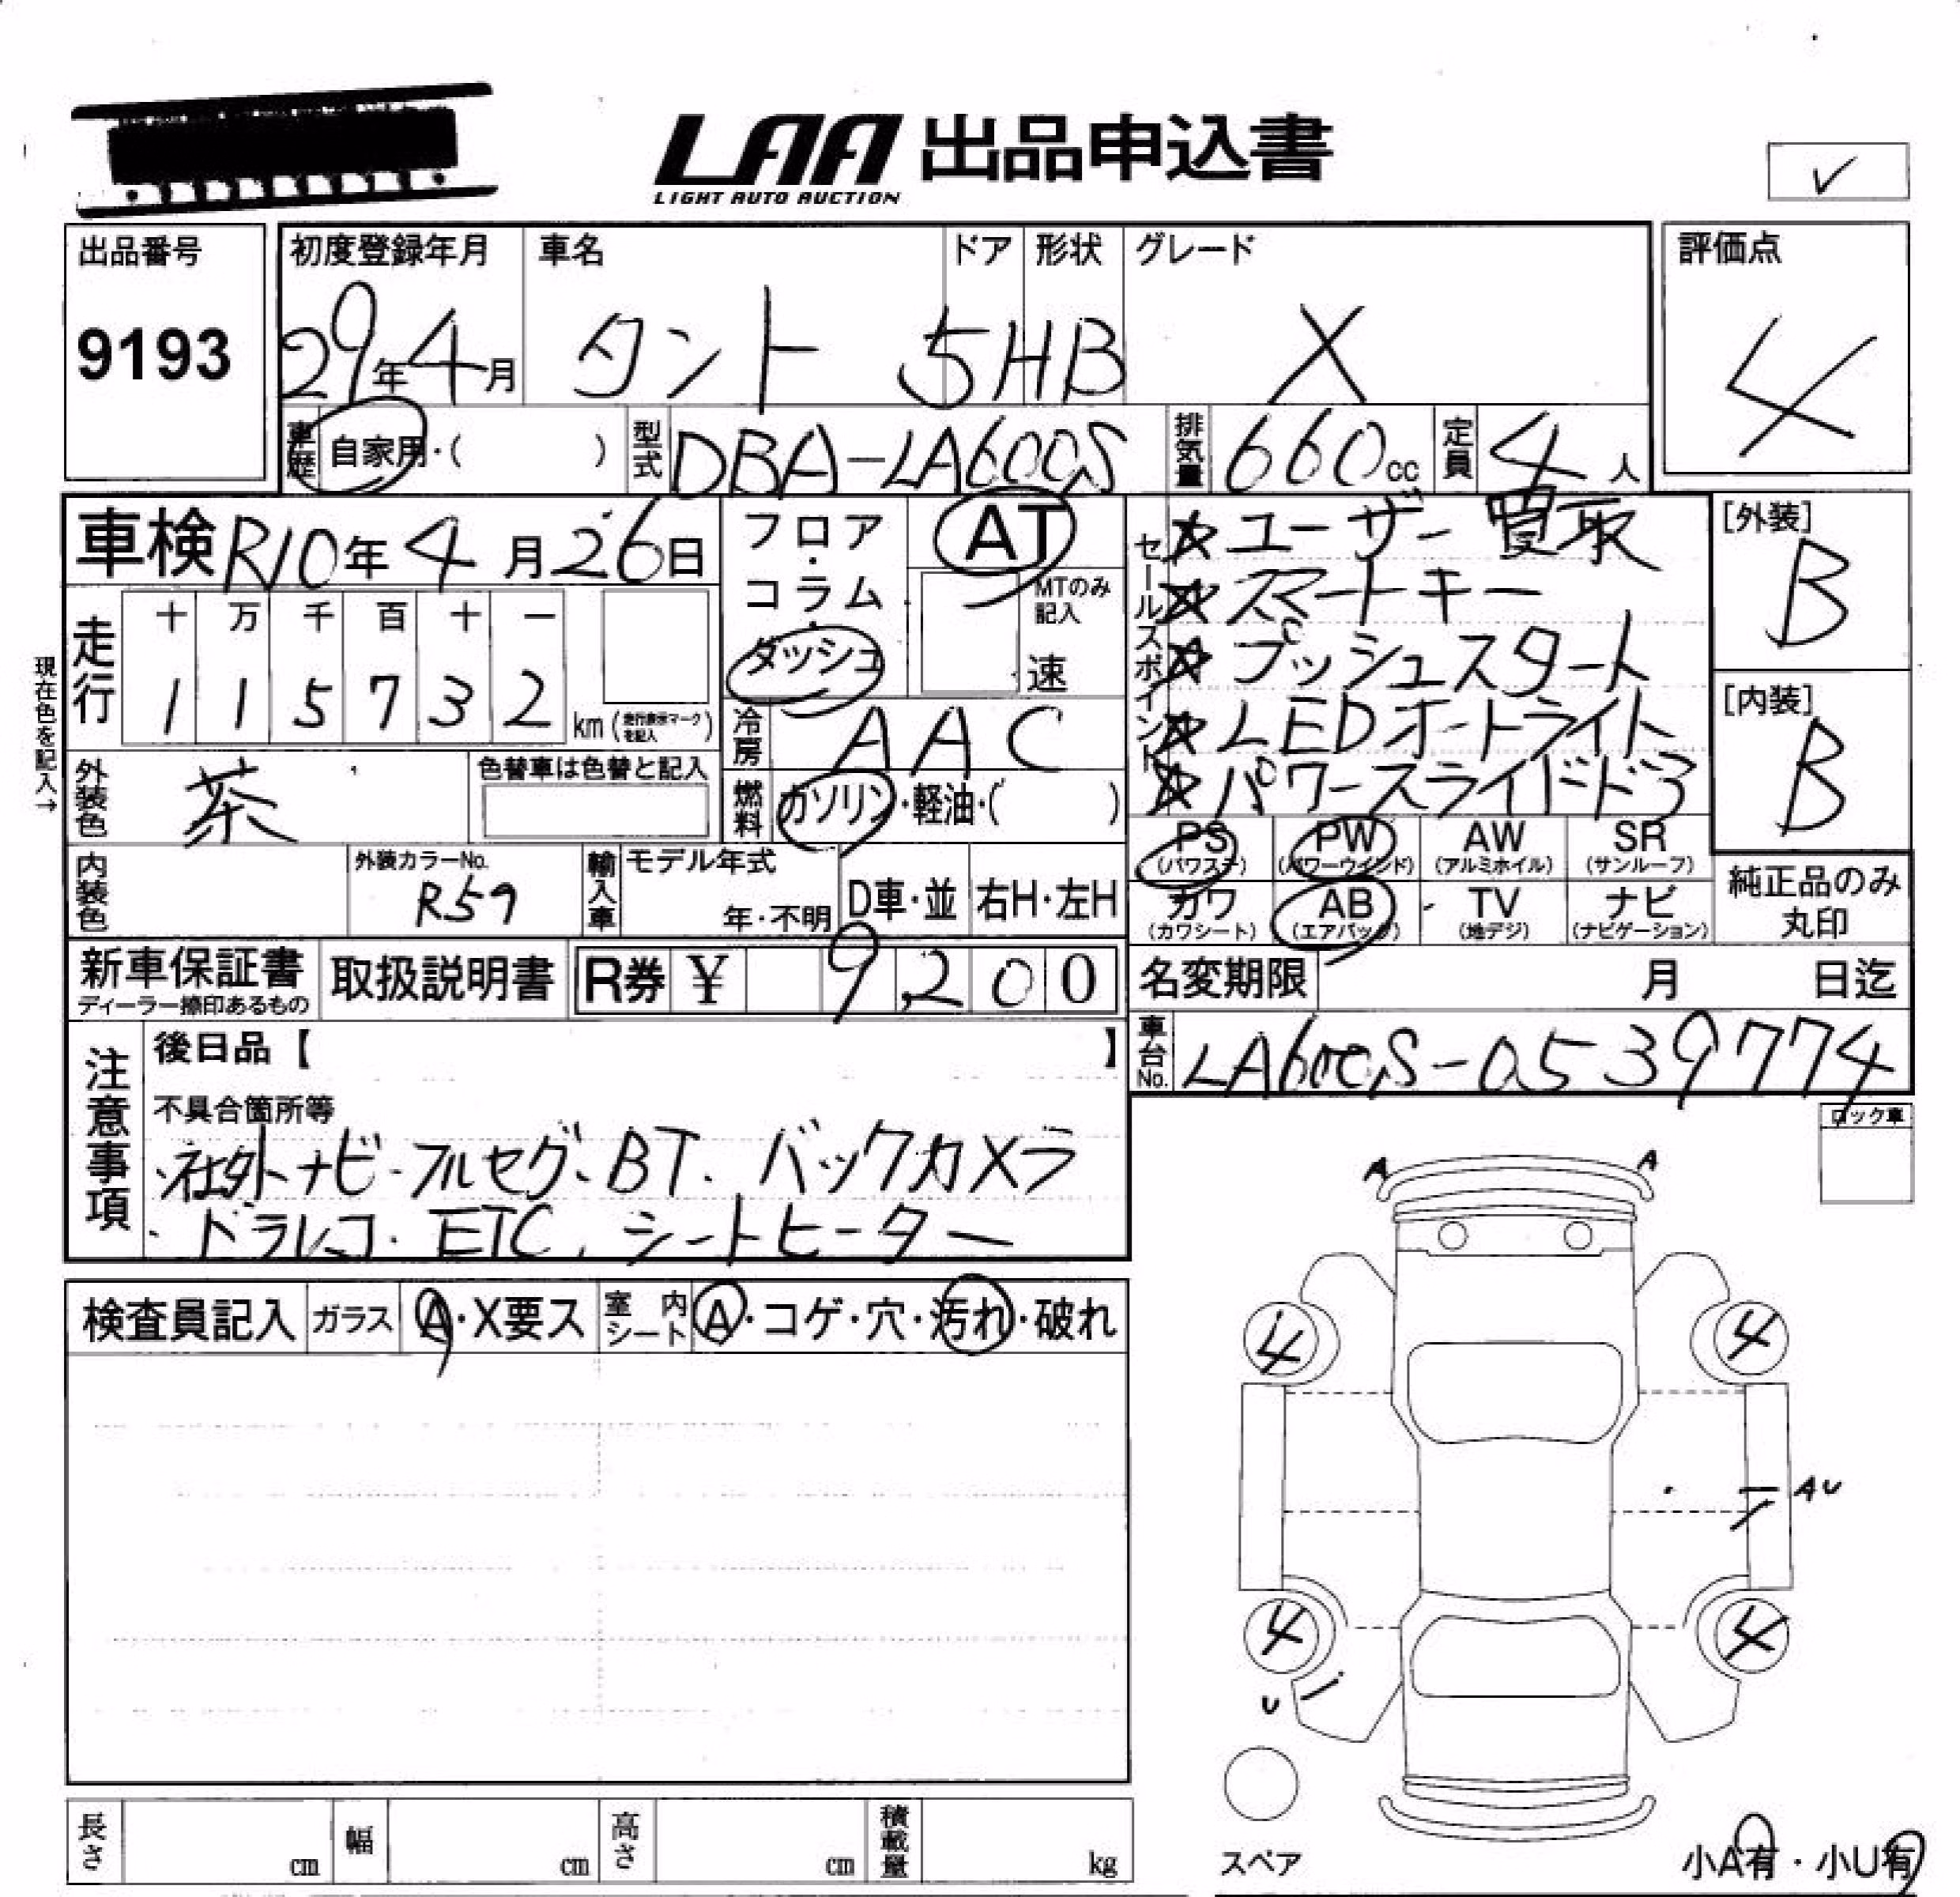 LAA 出品申込書
LIGHT AUTO AUCTION
✓
出品番号 初度登録年月 車名 ドア 形状 グレード 評価点
9193 29年4月 タント 5 HB X 4
車歴 自家用・( ) 型式 DBA-LA600S 排気量 660cc 定員 4人
車検 R10年4月26日
フロア・コラム・ダッシュ
AT
MTのみ記入
速
セールスポイント
☆ユーザー買取
☆スマートキー
☆プッシュスタート
☆LEDオートライト
☆パワースライドドア
[外装]
B
[内装]
B
現在色を記入→
走行 十 万 千 百 十 一
1 1 5 7 3 2 km (走行表示マークを記入)
冷房 AAC
外装色 茶 色替車は色替と記入
燃料 ガソリン・軽油・( )
PS (パワステ) PW (パワーウインド) AW (アルミホイル) SR (サンルーフ)
カワ (カワシート) AB (エアバッグ) TV (地デジ) ナビ (ナビゲーション)
純正品のみ
丸印
内装色 外装カラーNo. R59 輸入車 モデル年式 年・不明 D車・並 右H・左H
新車保証書 ディーラー捺印あるもの 取扱説明書 R券 ¥ 9,200
名変期限 月 日迄
車台No. LA600S-0539774
注意事項
後日品【 】
不具合箇所等
・社外ナビ・フルセグ・BT・バックカメラ
・ドラレコ・ETC、シートヒーター
ロック車
A A
検査員記入 ガラス A・X要ス 室内シート A・コゲ・穴・汚れ・破れ
4 4
AU
4 4
U
スペア
小A有・小U有
長さ cm 幅 cm 高さ cm 積載量 kg